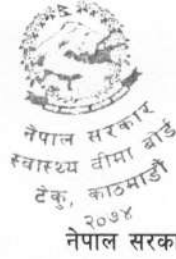 नेपाल सरकार
स्वास्थ्य वीमा बोर्ड
टेकु, काठमाडौं
२०७४
नेपाल सरका